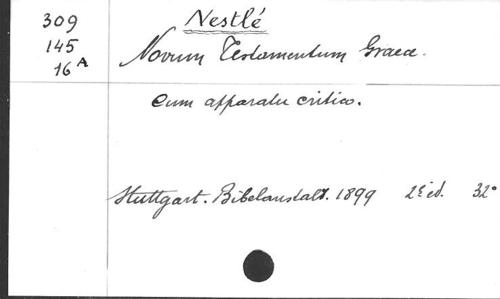 309
145
16 A
Nestlé
Novum Testamentum Graece.
cum apparatu critico.
Stuttgart. Bibelanstalt. 1899 2e éd. 32°